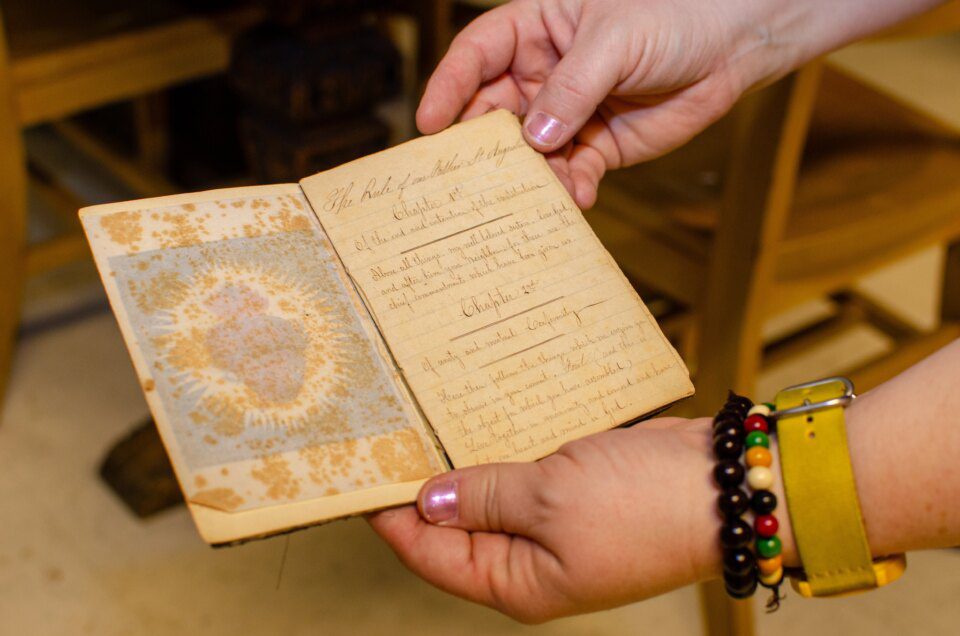 The Rule of our Father St. Augustine
Chapter 1st
Of the end and intention of the institution
Above all things, my well beloved sisters, love God,
and after him your neighbour: for these are the
chief commandments which have been given us
Chapter 2nd
Of unity and mutual Conformity
These then follow the things which we enjoin you
to observe
the object for which you have assembled
Love together in community and
one heart and mind in God.